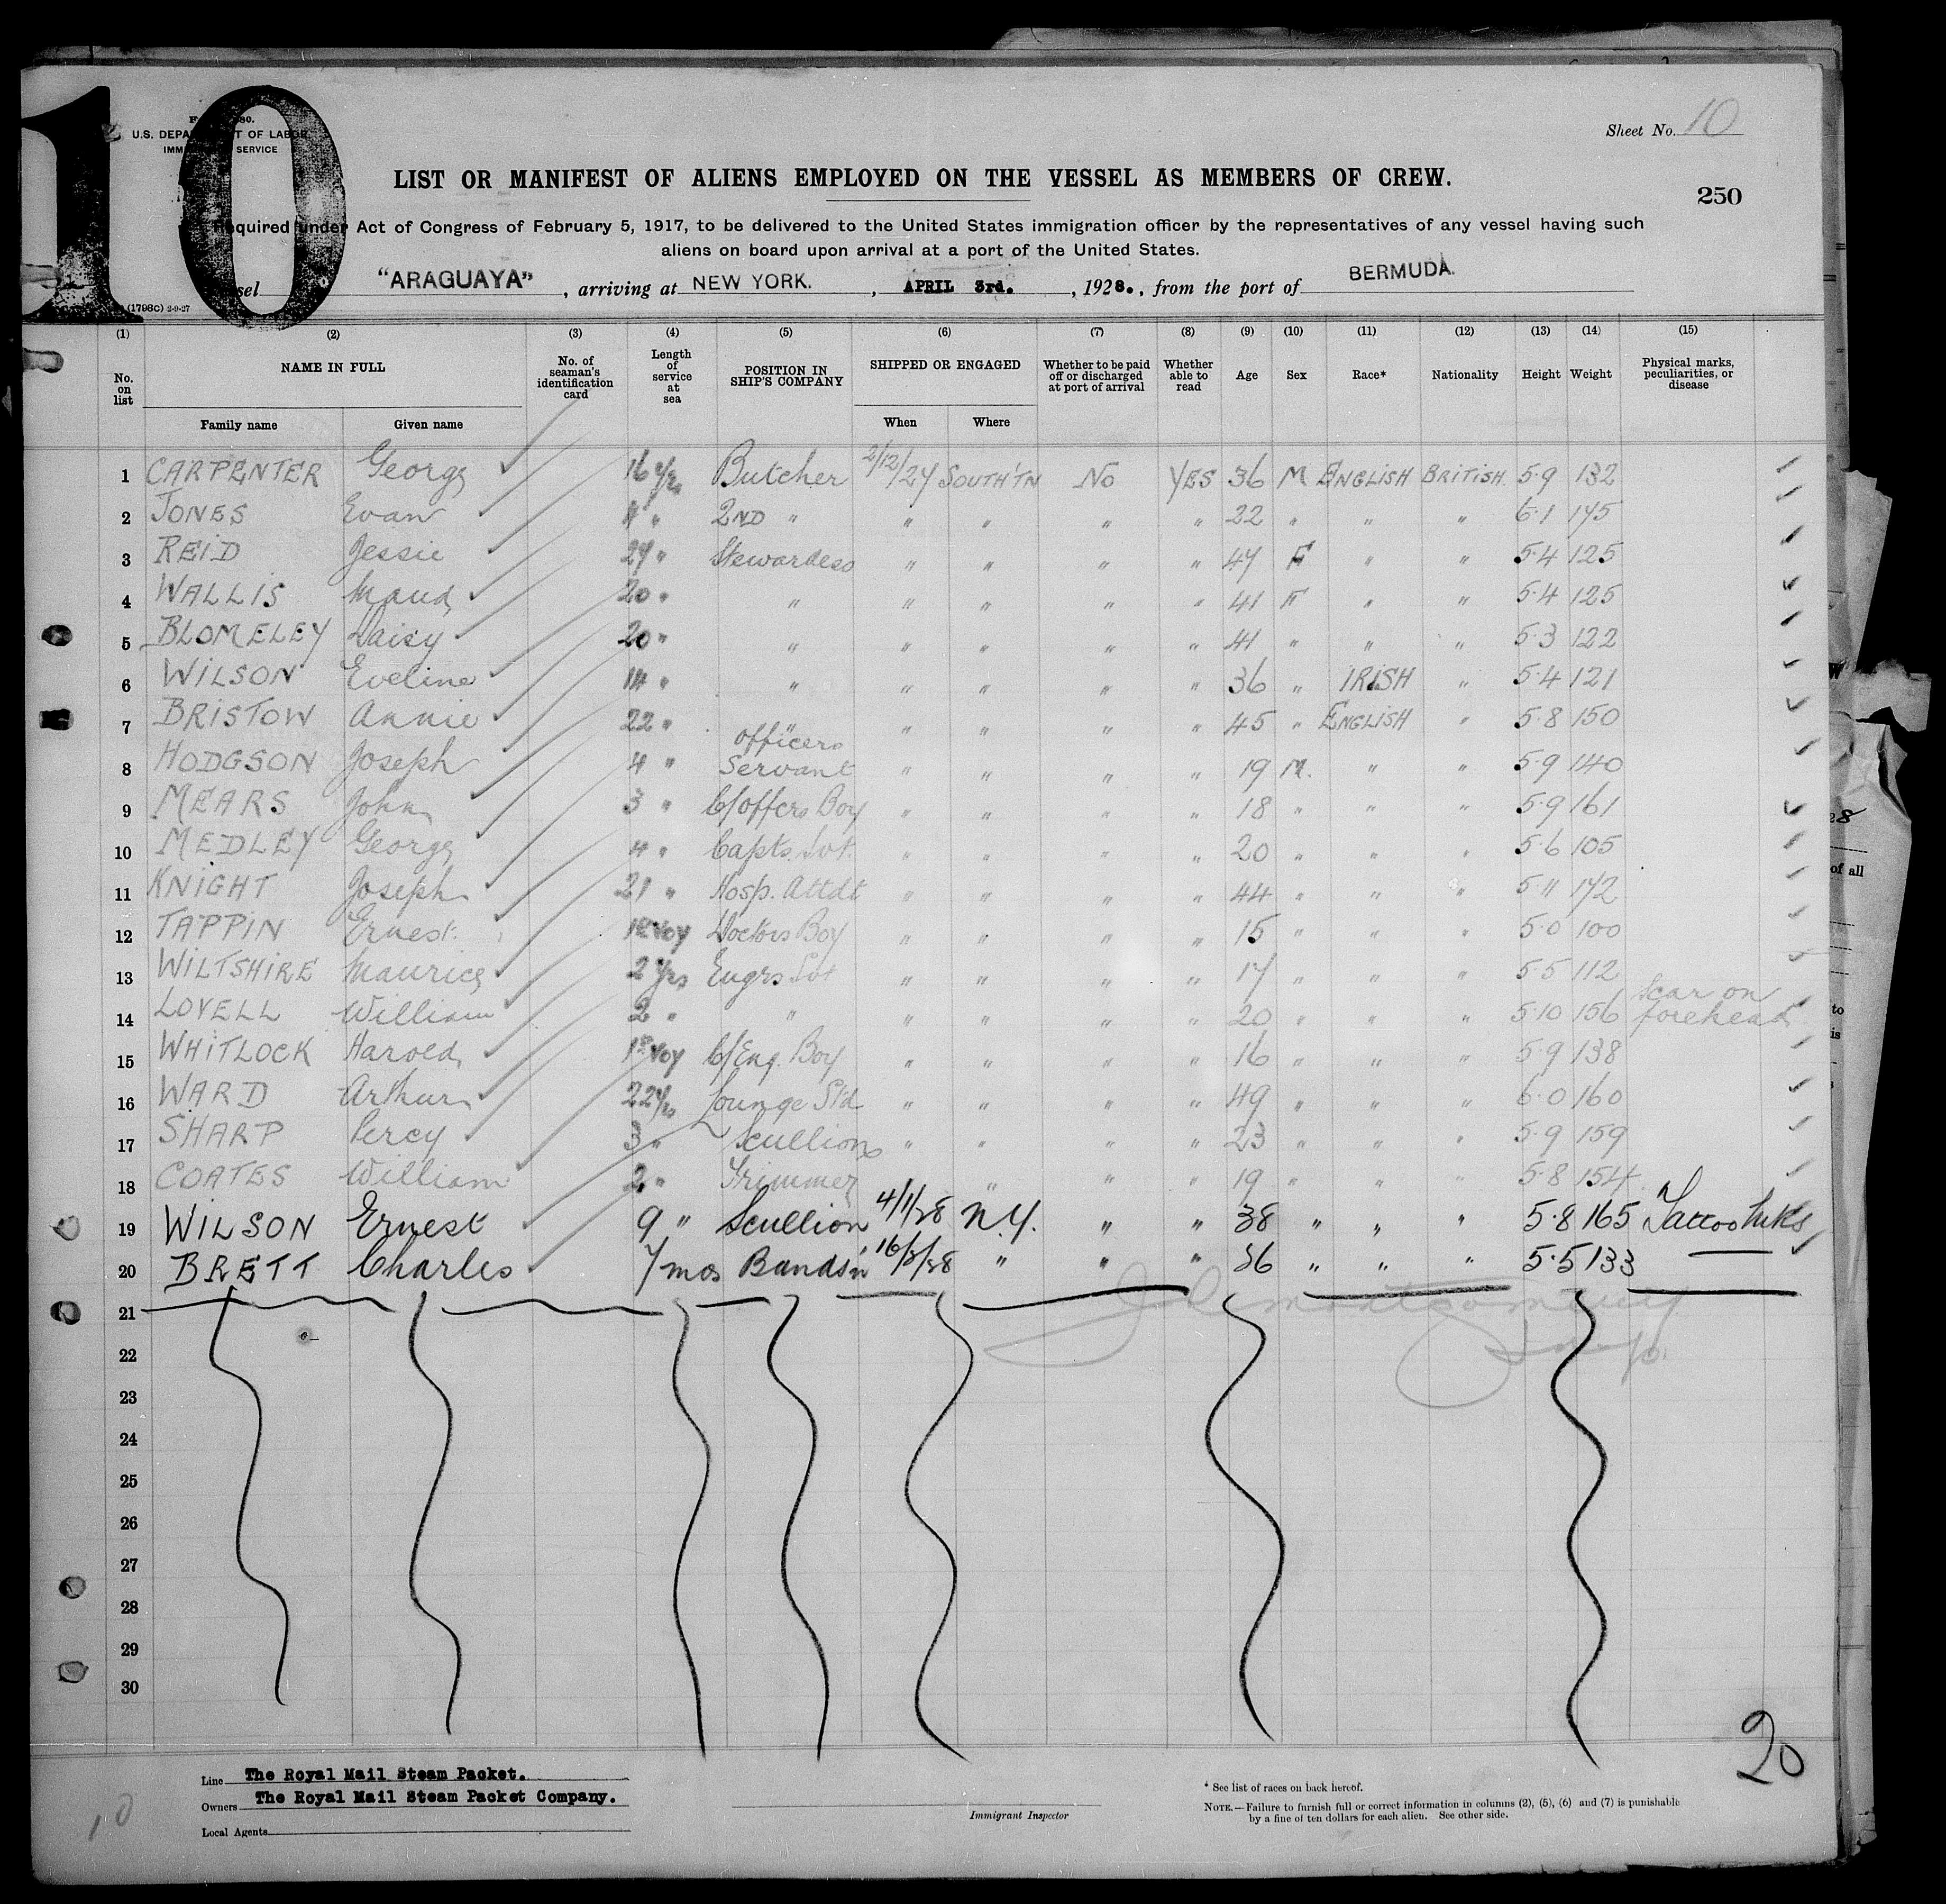 10
Sheet No. 10
U.S. DEPARTMENT OF LABOR
SERVICE
LIST OR MANIFEST OF ALIENS EMPLOYED ON THE VESSEL AS MEMBERS OF CREW.
250
Required under Act of Congress of February 5, 1917, to be delivered to the United States immigration officer by the representatives of any vessel having such
aliens on board upon arrival at a port of the United States.
"ARAGUAYA", arriving at NEW YORK., APRIL 3rd., 1928., from the port of BERMUDA.
(1798C) 2-9-27
(1) (2) (3) (4) (5) (6) (7) (8) (9) (10) (11) (12) (13) (14) (15)
No. on list NAME IN FULL No. of seaman's identification card Length of service at sea POSITION IN SHIP'S COMPANY SHIPPED OR ENGAGED Whether to be paid off or discharged at port of arrival Whether able to read Age Sex Race* Nationality Height Weight Physical marks, peculiarities, or disease
Family name Given name When Where
1 CARPENTER George 16 yrs Butcher 2/12/27 SOUTH'TN No YES 36 M ENGLISH BRITISH. 5.9 132
2 JONES Evan " 2ND " " " " " 22 " " " 6.1 175
3 REID Jessie 27 " Stewardess " " " " 47 F " " 5.4 125
4 WALLIS Maud 20 " " " " " " 41 F " " 5.4 125
5 BLOMELEY Daisy 20 " " " " " " 41 " " " 5.3 122
6 WILSON Eveline 14 " " " " " " 36 " IRISH " 5.4 121
7 BRISTOW Annie 22 " " " " " " 45 " ENGLISH " 5.8 150
8 HODGSON Joseph 4 " officers Servant " " " " 19 M. " " 5.9 140
9 MEARS John 3 " C/offcrs Boy " " " " 18 " " " 5.9 161
10 MEDLEY George 4 " Capts. Svt. " " " " 20 " " " 5.6 105
11 KNIGHT Joseph 21 " Hosp. Attdt " " " " 44 " " " 5.11 172
12 TAPPIN Ernest. 1st Voy Doctors Boy " " " " 15 " " " 5.0 100
13 WILTSHIRE Maurice 2 yrs Engrs Svt " " " " 17 " " " 5.5 112
14 LOVELL William 2 " " " " " " 20 " " " 5.10 156 Scar on forehead
15 WHITLOCK Harold 1st Voy C/Eng. Boy " " " " 16 " " " 5.9 138
16 WARD Arthur 22 yrs Lounge Std " " " " 49 " " " 6.0 160
17 SHARP Percy 3 " Scullion " " " " 23 " " " 5.9 159
18 COATES William 2 " Trimmer " " " 19 " " " 5.8 154
19 WILSON Ernest 9 " Scullion 4/1/28 N.Y. " " 38 " " " 5.8 165 Tattoo
20 BRETT Charles 7 mos Bandsn 16/3/28 " " " 36 " " " 5.5 133
21
Montgomery
22
23
24
25
26
27
28
29
30
20
Line The Royal Mail Steam Packet.
Owners The Royal Mail Steam Packet Company.
Local Agents
Immigrant Inspector
* See list of races on back hereof.
NOTE.—Failure to furnish full or correct information in columns (2), (5), (6) and (7) is punishable
by a fine of ten dollars for each alien. See other side.
10
28
of all
to
is